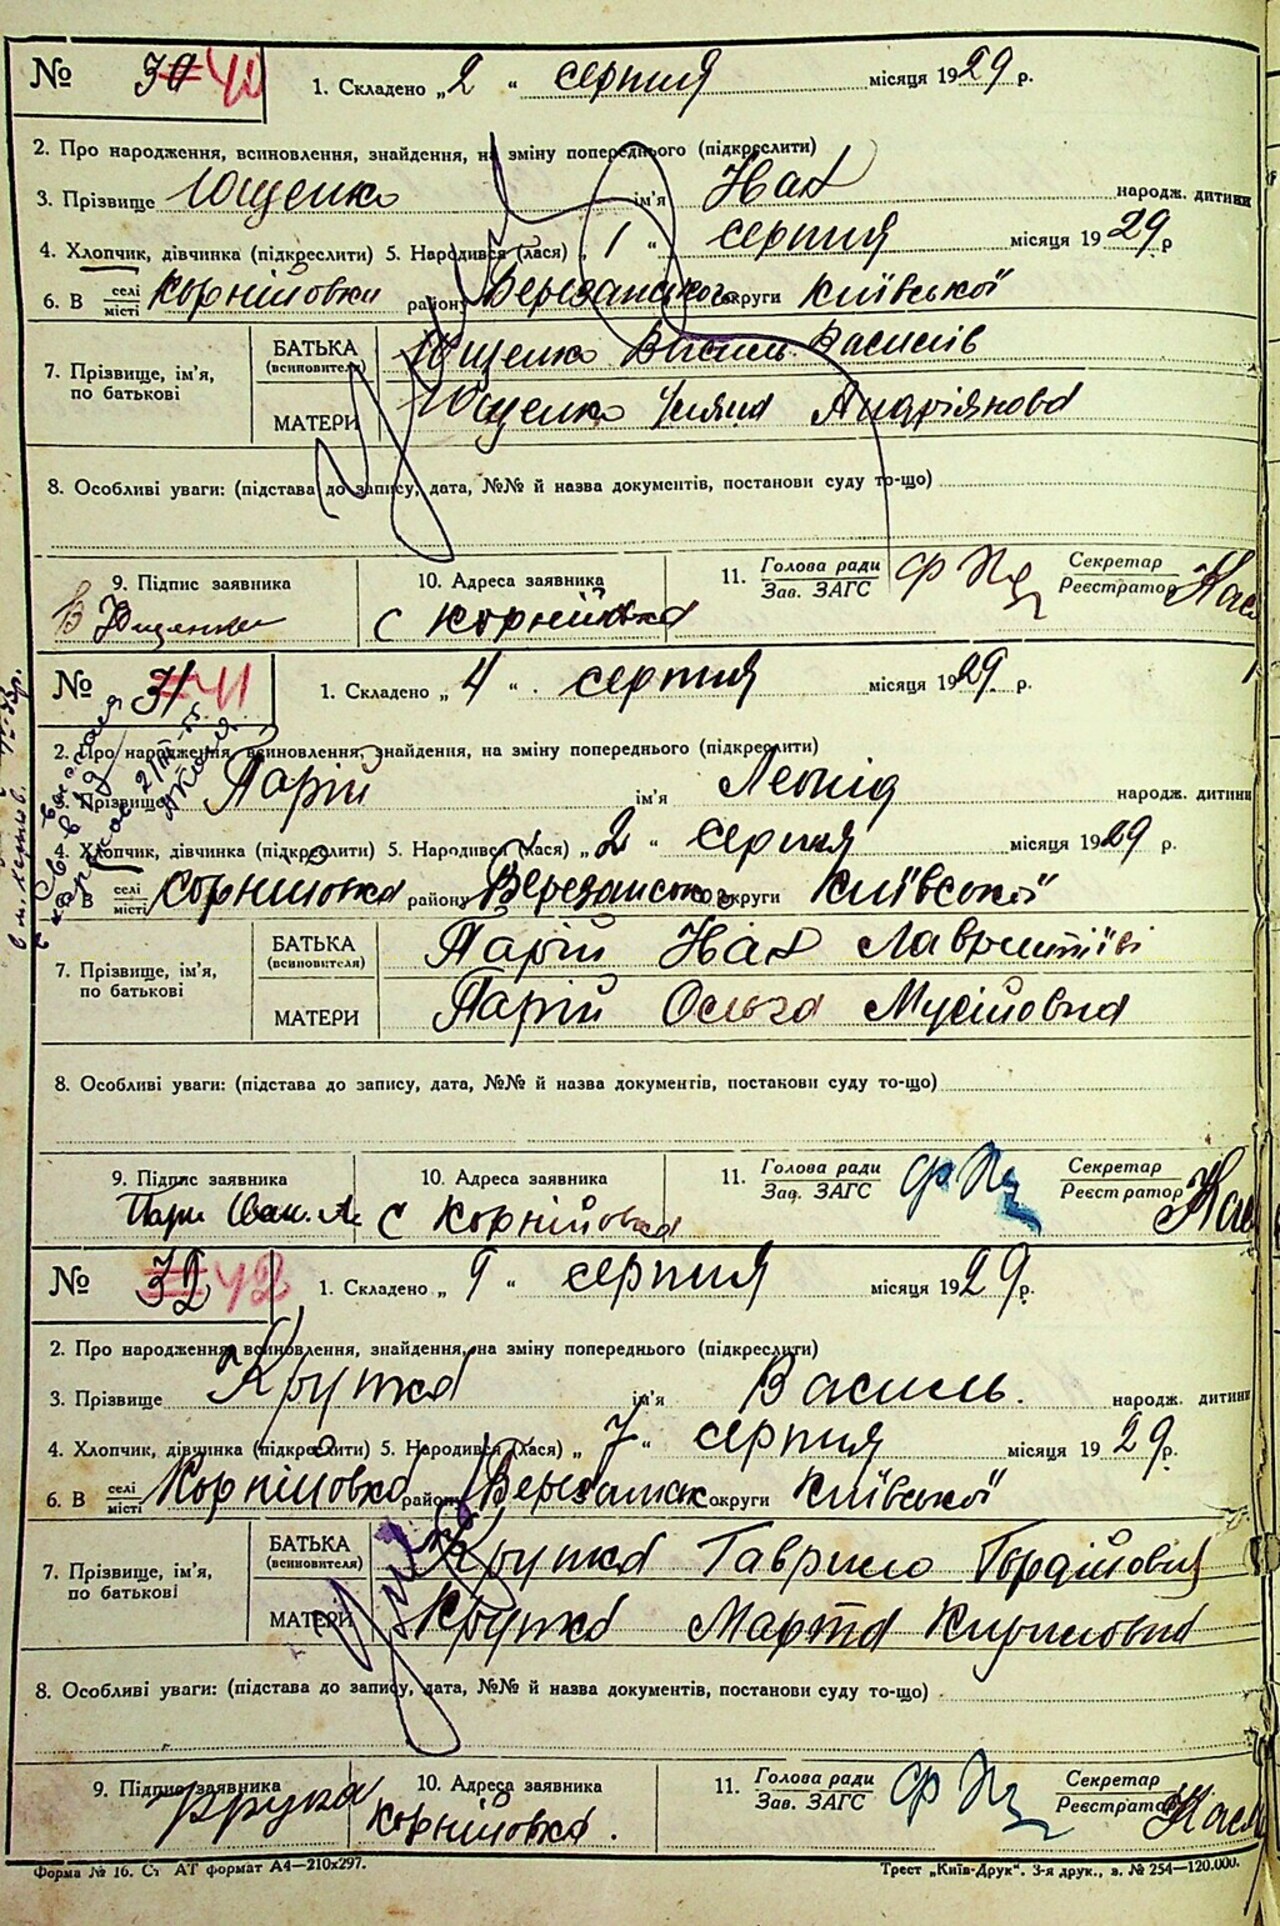 № 30 40 1. Складено „2" серпня місяця 1929 р.
2. Про народження, всиновлення, знайдення, на зміну попереднього (підкреслити)
3. Прізвище Ющенко ім'я Іван народж. дитини
4. Хлопчик, дівчинка (підкреслити) 5. Народився (лася) „1" серпня місяця 1929 р
6. В селі місті Корнійовки району Березанського округи Київської
7. Прізвище, ім'я, по батькові БАТЬКА (всиновителя) Ющенко Василь Василів
МАТЕРИ Ющенко Уляна Андріянова
8. Особливі уваги: (підстава до запису, дата, №№ й назва документів, постанови суду то-що)
9. Підпис заявника 10. Адреса заявника 11. Голова ради Зав. ЗАГС Секретар Реєстратор
В Ющенко с Корнійовка
№ 31 41 1. Складено „4" серпня місяця 1929 р.
2. Про народження, всиновлення, знайдення, на зміну попереднього (підкреслити)
3. Прізвище Парій ім'я Леонід народж. дитини
4. Хлопчик, дівчинка (підкреслити) 5. Народився (лася) „2" серпня місяця 1929 р.
6. В селі місті Корнійовка району Березанського округи Київської
7. Прізвище, ім'я, по батькові БАТЬКА (всиновителя) Парій Іван
МАТЕРИ Парій Ольга Мусійовна
8. Особливі уваги: (підстава до запису, дата, №№ й назва документів, постанови суду то-що)
9. Підпис заявника 10. Адреса заявника 11. Голова ради Зав. ЗАГС Секретар Реєстратор
с Корнійовка
№ 32 42 1. Складено „9" серпня місяця 1929 р.
2. Про народження, всиновлення, знайдення, на зміну попереднього (підкреслити)
3. Прізвище Крутка ім'я Василь. народж. дитини
4. Хлопчик, дівчинка (підкреслити) 5. Народився (лася) „7" серпня місяця 1929 р.
6. В селі місті Корнійовка району Березанськ округи Київської
7. Прізвище, ім'я, по батькові БАТЬКА (всиновителя) Крутка Гаврило Гордійович
МАТЕРИ Крутка Марта Кириловна
8. Особливі уваги: (підстава до запису, дата, №№ й назва документів, постанови суду то-що)
9. Підпис заявника 10. Адреса заявника 11. Голова ради Зав. ЗАГС Секретар Реєстратор
Корнійовка.
Форма № 16. Ст АТ формат А4—210х297. Трест „Київ-Друк". 3-я друк., в. № 254—120.000.